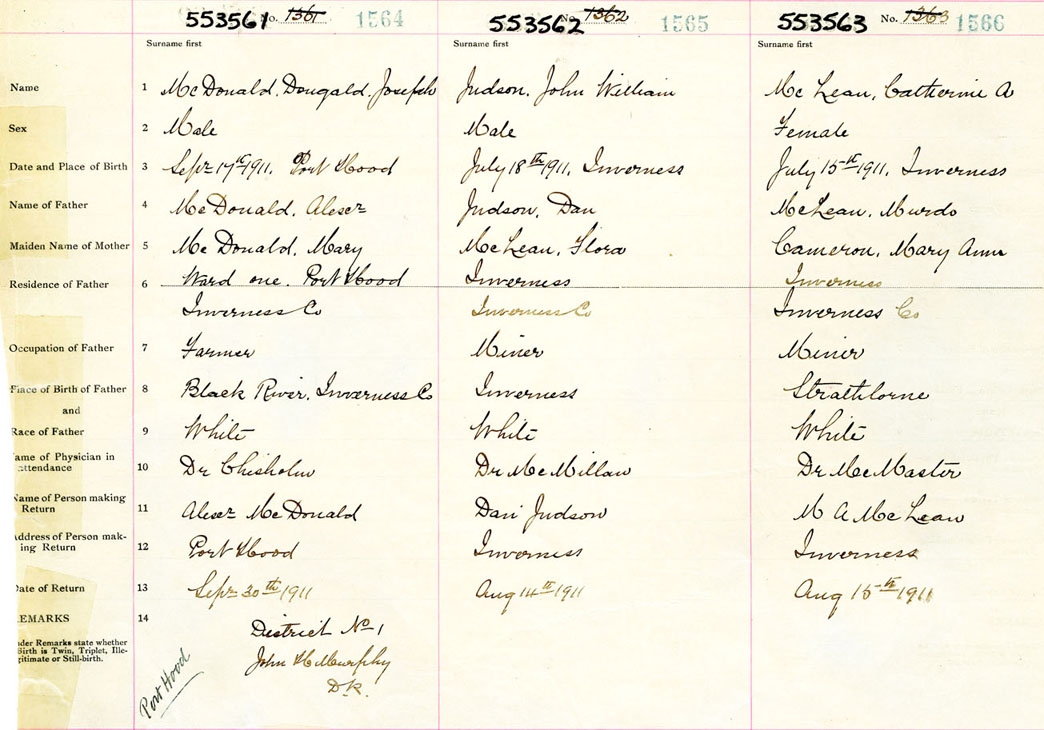 553561 No. 1361 1564
553562 No. 1362 1565
553563 No. 1363 1566
Surname first Surname first Surname first
Name 1 McDonald, Dougald, Joseph Judson, John William McLean, Catherine A
Sex 2 Male Male Female
Date and Place of Birth 3 Sept 17th 1911, Port Hood July 18th 1911, Inverness July 15th 1911, Inverness
Name of Father 4 McDonald, Alexr Judson, Dan McLean, Murdo
Maiden Name of Mother 5 McDonald, Mary McLean, Flora Cameron, Mary Ann
Residence of Father 6 Ward one, Port Hood Inverness Inverness
Inverness Co Inverness Co Inverness Co
Occupation of Father 7 Farmer Miner Miner
Place of Birth of Father 8 Black River, Inverness Co Inverness Strathlorne
and
Race of Father 9 White White White
ame of Physician in
attendance 10 Dr Chisholm Dr McMillan Dr McMaster
Name of Person making
Return 11 Alexr McDonald Dan Judson M A McLean
Address of Person mak-
ing Return 12 Port Hood Inverness Inverness
Date of Return 13 Sept 30th 1911 Aug 14th 1911 Aug 15th 1911
EMARKS 14
District No 1
nder Remarks state whether
Birth is Twin, Triplet, Ille-
gitimate or Still-birth.
John H Murphy
D.R.
Port Hood